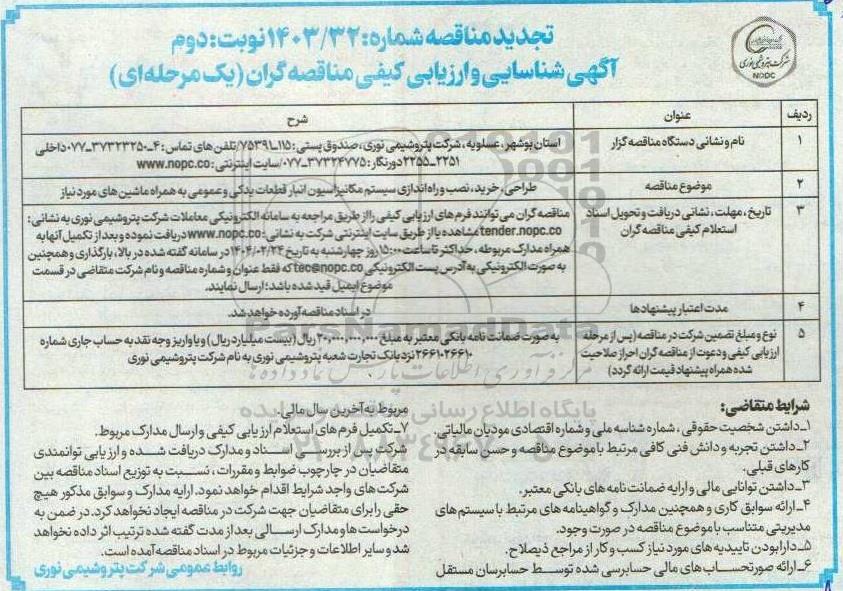 تجدید مناقصه شماره: ۱۴۰۳/۳۲ نوبت: دوم
آگهی شناسایی و ارزیابی کیفی مناقصه گران (یک مرحله ای)
شرکت پتروشیمی نوری
NOPC
ردیف
عنوان
شرح
۱
نام و نشانی دستگاه مناقصه گزار
استان بوشهر، عسلویه، شرکت پتروشیمی نوری، صندوق پستی: ۱۱۵-۷۵۳۹۱/تلفن های تماس: ۴-۳۷۳۲۳۲۵۰-۰۷۷ داخلی
۲۲۵۱-۲۲۵۵ دورنگار: ۳۷۳۲۴۷۷۵-۰۷۷/سایت اینترنتی: www.nopc.co
۲
موضوع مناقصه
طراحی، خرید، نصب و راه اندازی سیستم مکانیزاسیون انبار قطعات یدکی و عمومی به همراه ماشین های مورد نیاز
۳
تاریخ، مهلت، نشانی دریافت و تحویل اسناد
استعلام کیفی مناقصه گران
مناقصه گران می توانند فرم های ارزیابی کیفی را از طریق مراجعه به سامانه الکترونیکی معاملات شرکت پتروشیمی نوری به نشانی:
tender.nopc.co مشاهده یا از طریق سایت اینترنتی شرکت به نشانی: www.nopc.co دریافت نموده و بعد از تکمیل آنها به
همراه مدارک مربوطه، حداکثر تا ساعت ۱۵:۰۰ روز چهارشنبه به تاریخ ۱۴۰۴/۰۲/۲۴ در سامانه گفته شده در بالا، بارگذاری و همچنین
به صورت الکترونیکی به آدرس پست الکترونیکی tec@nopc.co که فقط عنوان و شماره مناقصه و نام شرکت متقاضی در قسمت
موضوع ایمیل قید شده باشد؛ ارسال نمایند.
۴
مدت اعتبار پیشنهادها
در اسناد مناقصه آورده خواهد شد.
۵
نوع و مبلغ تضمین شرکت در مناقصه (پس از مرحله
ارزیابی کیفی و دعوت از مناقصه گران احراز صلاحیت
شده همراه پیشنهاد قیمت ارائه گردد)
به صورت ضمانت نامه بانکی معتبر به مبلغ ۲۰,۰۰۰,۰۰۰,۰۰۰ ریال (بیست میلیارد ریال) و یا واریز وجه نقد به حساب جاری شماره
۲۶۶۱۰۲۶۶۱۰ نزد بانک تجارت شعبه پتروشیمی نوری به نام شرکت پتروشیمی نوری
ParsNamadData
شرایط متقاضی:
۱-داشتن شخصیت حقوقی، شماره شناسه ملی و شماره اقتصادی مودیان مالیاتی
۲-داشتن تجربه و دانش فنی کافی مرتبط با موضوع مناقصه و حسن سابقه در
کارهای قبلی.
۳-داشتن توانایی مالی و ارایه ضمانت نامه های بانکی معتبر.
۴-ارائه سوابق کاری و همچنین مدارک و گواهینامه های مرتبط با سیستم های
مدیریتی متناسب با موضوع مناقصه در صورت وجود.
۵-دارا بودن تاییدیه های مورد نیاز کسب و کار از مراجع ذیصلاح.
۶-ارائه صورتحساب های مالی حسابرسی شده توسط حسابرسان مستقل
مربوط به آخرین سال مالی.
۷-تکمیل فرم های استعلام ارزیابی کیفی و ارسال مدارک مربوط.
شرکت پس از بررسی اسناد و مدارک دریافت شده و ارزیابی توانمندی
متقاضیان در چارچوب ضوابط و مقررات، نسبت به توزیع اسناد مناقصه بین
شرکت های واجد شرایط اقدام خواهد نمود. ارایه مدارک و سوابق مذکور هیچ
حقی را برای متقاضیان جهت شرکت در مناقصه ایجاد نخواهد کرد. در ضمن به
درخواست ها و مدارک ارسالی بعد از مدت گفته شده ترتیب اثر داده نخواهد
شد و سایر اطلاعات و جزئیات مربوط در اسناد مناقصه آمده است.
روابط عمومی شرکت پتروشیمی نوری